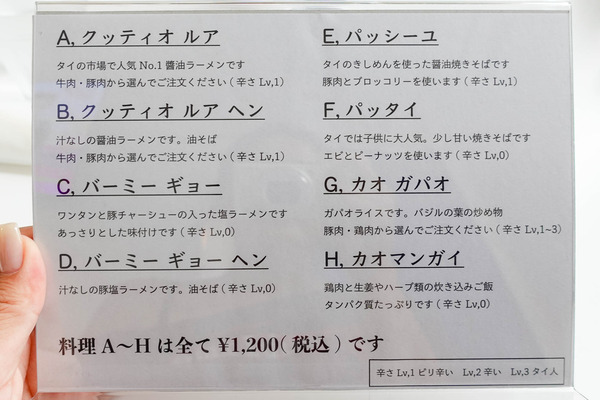 A, クッティオ ルア
タイの市場で人気 No.1 醬油ラーメンです
牛肉・豚肉から選んでご注文ください ( 辛さ Lv,1)
B, クッティオ ルア ヘン
汁なしの醤油ラーメンです。油そば
牛肉・豚肉から選んでご注文ください ( 辛さ Lv,1)
C, バーミー ギョー
ワンタンと豚チャーシューの入った塩ラーメンです
あっさりとした味付けです ( 辛さ Lv,0)
D, バーミー ギョー ヘン
汁なしの豚塩ラーメンです。油そば ( 辛さ Lv,0)
E, パッシーユ
タイのきしめんを使った醤油焼きそばです
豚肉とブロッコリーを使います ( 辛さ Lv,1)
F, パッタイ
タイでは子供に大人気。少し甘い焼きそばです
エビとピーナッツを使います ( 辛さ Lv,0)
G, カオ ガパオ
ガパオライスです。バジルの葉の炒め物
豚肉・鶏肉から選んでご注文ください ( 辛さ Lv,1~3)
H, カオマンガイ
鶏肉と生姜やハーブ類の炊き込みご飯
タンパク質たっぷりです ( 辛さ Lv,0)
料理 A〜H は全て ¥1,200( 税込 ) です
辛さ Lv,1 ピリ辛い Lv,2 辛い Lv,3 タイ人